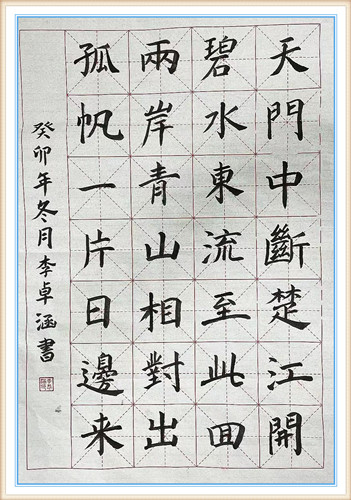 天門中斷楚江開
碧水東流至此回
兩岸青山相對出
孤帆一片日邊来
癸卯年冬月李卓涵書